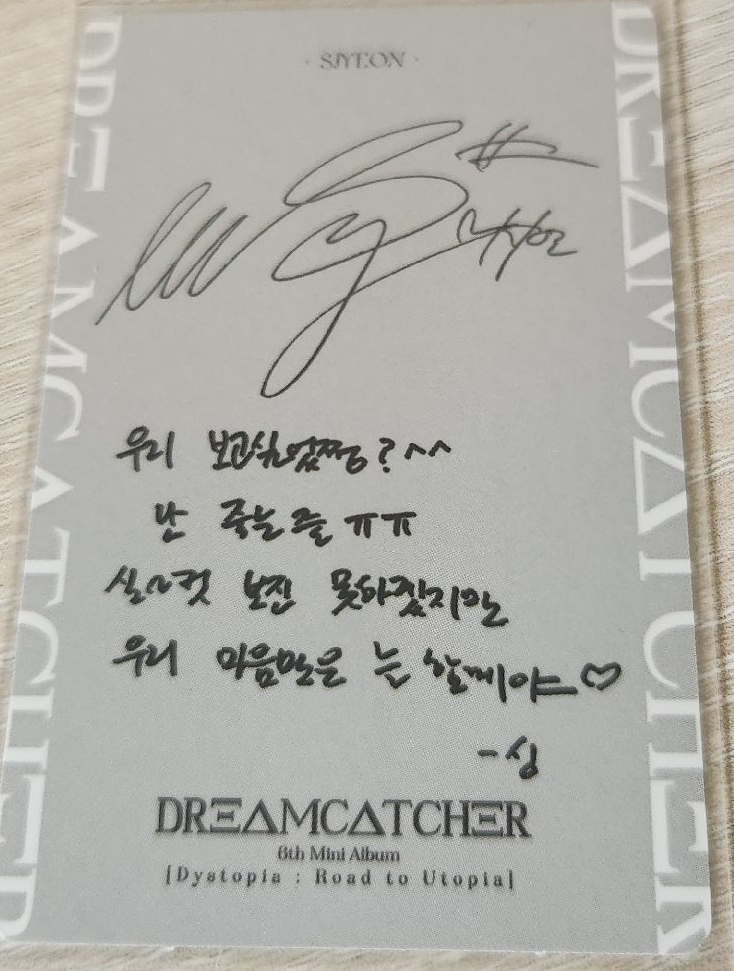 · SIYEON ·
우리 보고싶었찡?^^
난 죽는 줄 ㅠㅠ
실컷 보진 못하겠지만
우리 마음만은 늘 함께야 ♡
- 싱
DRΞΔMCΔTCHΞR
6th Mini Album
[Dystopia : Road to Utopia]
DRΞΔMCΔTCHΞR
DRΞΔMCΔTCHΞR